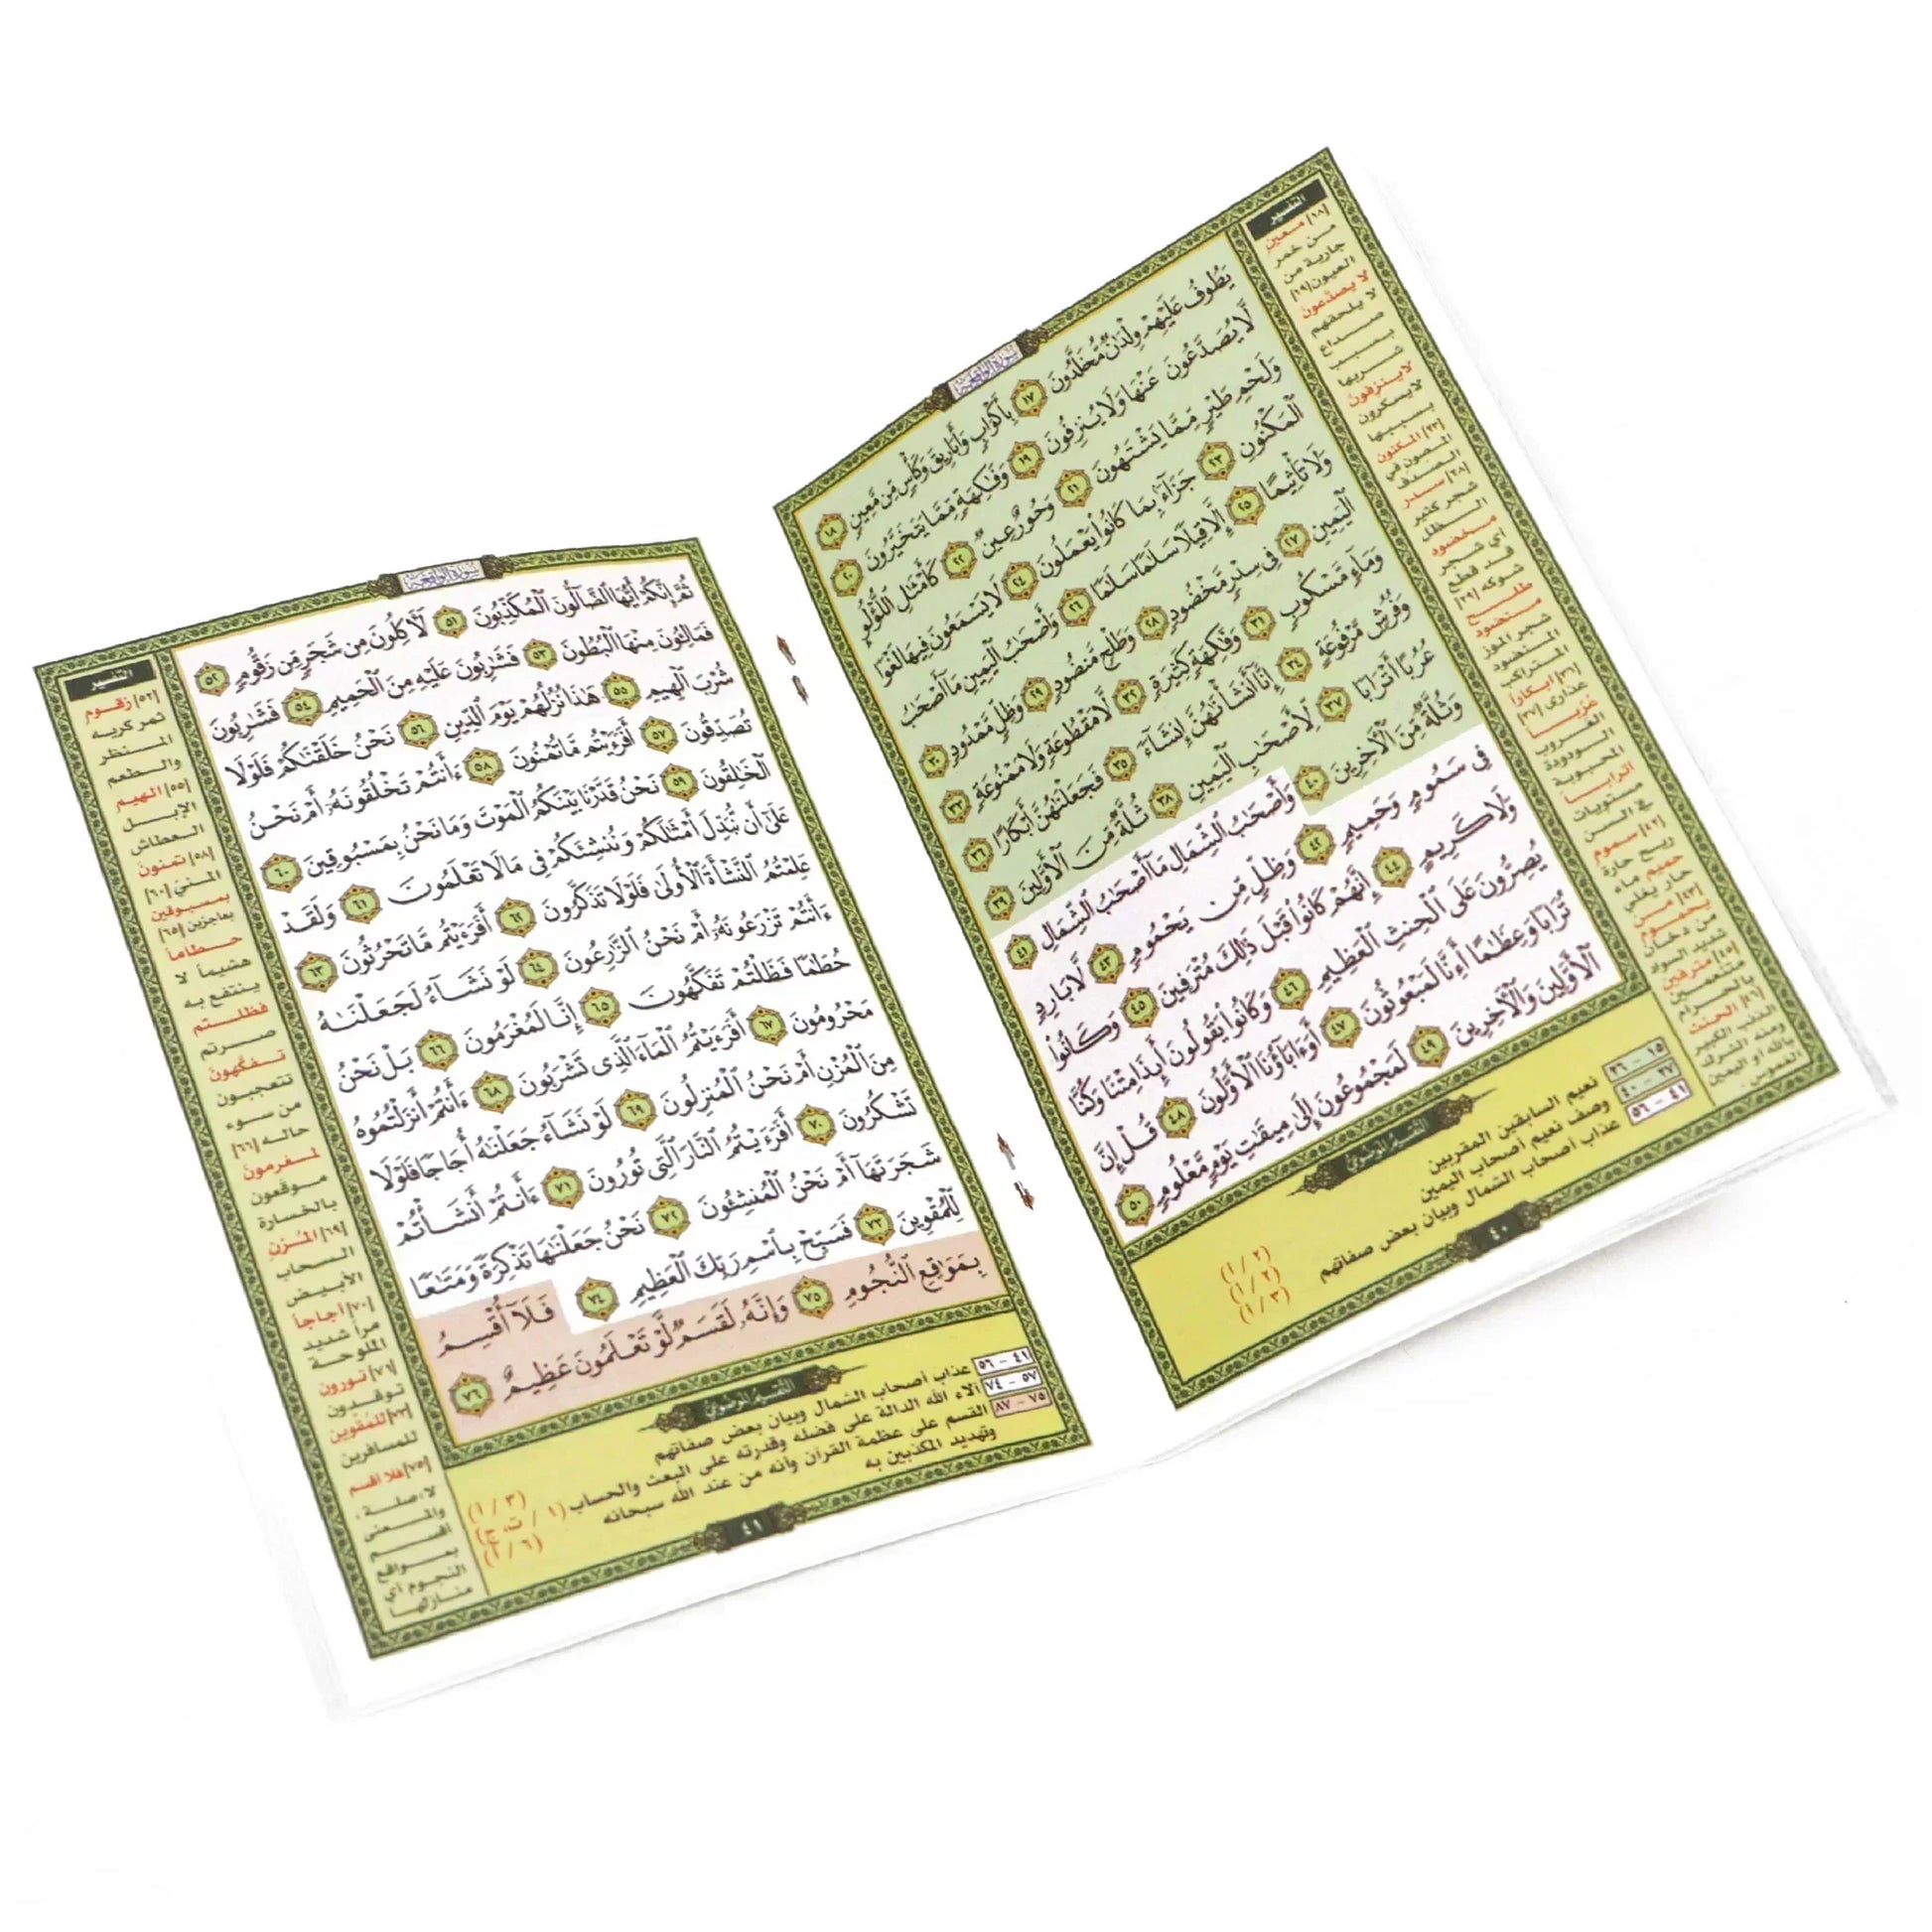 سورة الواقعة
يَطُوفُ عَلَيْهِمْ وِلْدَٰنٌ مُّخَلَّدُونَ ١٧ بِأَكْوَابٍ وَأَبَارِيقَ وَكَأْسٍ مِّن مَّعِينٍ ١٨
لَّا يُصَدَّعُونَ عَنْهَا وَلَا يُنزِفُونَ ١٩ وَفَٰكِهَةٍ مِّمَّا يَتَخَيَّرُونَ ٢٠
وَلَحْمِ طَيْرٍ مِّمَّا يَشْتَهُونَ ٢١ وَحُورٌ عِينٌ ٢٢ كَأَمْثَٰلِ ٱللُّؤْلُؤِ
ٱلْمَكْنُونِ ٢٣ جَزَآءًۢ بِمَا كَانُوا۟ يَعْمَلُونَ ٢٤ لَا يَسْمَعُونَ فِيهَا لَغْوًا
وَلَا تَأْثِيمًا ٢٥ إِلَّا قِيلًا سَلَٰمًا سَلَٰمًا ٢٦ وَأَصْحَٰبُ ٱلْيَمِينِ مَآ أَصْحَٰبُ
ٱلْيَمِينِ ٢٧ فِى سِدْرٍ مَّخْضُودٍ ٢٨ وَطَلْحٍ مَّنضُودٍ ٢٩ وَظِلٍّ مَّمْدُودٍ ٣٠
وَمَآءٍ مَّسْكُوبٍ ٣١ وَفَٰكِهَةٍ كَثِيرَةٍ ٣٢ لَّا مَقْطُوعَةٍ وَلَا مَمْنُوعَةٍ ٣٣
وَفُرُشٍ مَّرْفُوعَةٍ ٣٤ إِنَّآ أَنشَأْنَٰهُنَّ إِنشَآءً ٣٥ فَجَعَلْنَٰهُنَّ أَبْكَارًا ٣٦
عُرُبًا أَتْرَابًا ٣٧ لِّأَصْحَٰبِ ٱلْيَمِينِ ٣٨ ثُلَّةٌ مِّنَ ٱلْأَوَّلِينَ ٣٩
وَثُلَّةٌ مِّنَ ٱلْءَاخِرِينَ ٤٠ وَأَصْحَٰبُ ٱلشِّمَالِ مَآ أَصْحَٰبُ ٱلشِّمَالِ ٤١
فِى سَمُومٍ وَحَمِيمٍ ٤٢ وَظِلٍّ مِّن يَحْمُومٍ ٤٣ لَّا بَارِدٍ
وَلَا كَرِيمٍ ٤٤ إِنَّهُمْ كَانُوا۟ قَبْلَ ذَٰلِكَ مُتْرَفِينَ ٤٥ وَكَانُوا۟
يُصِرُّونَ عَلَى ٱلْحِنثِ ٱلْعَظِيمِ ٤٦ وَكَانُوا۟ يَقُولُونَ أَئِذَا مِتْنَا وَكُنَّا
تُرَابًا وَعِظَٰمًا أَءِنَّا لَمَبْعُوثُونَ ٤٧ أَوَءَابَآؤُنَا ٱلْأَوَّلُونَ ٤٨ قُلْ إِنَّ
ٱلْأَوَّلِينَ وَٱلْءَاخِرِينَ ٤٩ لَمَجْمُوعُونَ إِلَىٰ مِيقَٰتِ يَوْمٍ مَّعْلُومٍ ٥٠
التفسير
[١٨] معين
من خمر
جارية من
العيون [١٩]
لا يصدّعون
لا يلحقهم
صداع
بسبب
شربها
لا ينزفون
لا يسكرون
بسببها
[٢٣] المكنون
المصون في
الصدف
[٢٨] سدر
شجر كثير
الظل
مخضود
أي شجر
قد قطع
شوكه [٢٩]
طلح
منضود
شجر الموز
المنضود
المتراكب
[٣٦] أبكاراً
عذارى [٣٧]
عُرُباً
العروب
الودودة
المحبوبة
أتراباً
مستويات
في السن
[٤٢] سموم
ريح حارة
حميم ماء
حار يغلي
[٤٣] من
يحموم
من دخان
شديد السواد
[٤٥] مترفين
متنعمين
بالحرام
[٤٦] الحنث
الذنب الكبير
ومنه الشرك
بالله أو اليمين
الغموس.
التفسير الموضوعي
١٥ - ٢٦ نعيم السابقين المقربين (١/٢)
٢٧ - ٤٠ وصف نعيم أصحاب اليمين (١/٢)
٤١ - ٥٦ عذاب أصحاب الشمال وبيان بعض صفاتهم (١/٣)
٤٠
سورة الواقعة
ثُمَّ إِنَّكُمْ أَيُّهَا ٱلضَّآلُّونَ ٱلْمُكَذِّبُونَ ٥١ لَءَاكِلُونَ مِن شَجَرٍ مِّن زَقُّومٍ ٥٢
فَمَالِـُٔونَ مِنْهَا ٱلْبُطُونَ ٥٣ فَشَٰرِبُونَ عَلَيْهِ مِنَ ٱلْحَمِيمِ ٥٤ فَشَٰرِبُونَ
شُرْبَ ٱلْهِيمِ ٥٥ هَٰذَا نُزُلُهُمْ يَوْمَ ٱلدِّينِ ٥٦ نَحْنُ خَلَقْنَٰكُمْ فَلَوْلَا
تُصَدِّقُونَ ٥٧ أَفَرَءَيْتُم مَّا تُمْنُونَ ٥٨ ءَأَنتُمْ تَخْلُقُونَهُۥٓ أَمْ نَحْنُ
ٱلْخَٰلِقُونَ ٥٩ نَحْنُ قَدَّرْنَا بَيْنَكُمُ ٱلْمَوْتَ وَمَا نَحْنُ بِمَسْبُوقِينَ ٦٠
عَلَىٰٓ أَن نُّبَدِّلَ أَمْثَٰلَكُمْ وَنُنشِئَكُمْ فِى مَا لَا تَعْلَمُونَ ٦١ وَلَقَدْ
عَلِمْتُمُ ٱلنَّشْأَةَ ٱلْأُولَىٰ فَلَوْلَا تَذَكَّرُونَ ٦٢ أَفَرَءَيْتُم مَّا تَحْرُثُونَ ٦٣
ءَأَنتُمْ تَزْرَعُونَهُۥٓ أَمْ نَحْنُ ٱلزَّٰرِعُونَ ٦٤ لَوْ نَشَآءُ لَجَعَلْنَٰهُ
حُطَٰمًا فَظَلْتُمْ تَفَكَّهُونَ ٦٥ إِنَّا لَمُغْرَمُونَ ٦٦ بَلْ نَحْنُ
مَحْرُومُونَ ٦٧ أَفَرَءَيْتُمُ ٱلْمَآءَ ٱلَّذِى تَشْرَبُونَ ٦٨ ءَأَنتُمْ أَنزَلْتُمُوهُ
مِنَ ٱلْمُزْنِ أَمْ نَحْنُ ٱلْمُنزِلُونَ ٦٩ لَوْ نَشَآءُ جَعَلْنَٰهُ أُجَاجًا فَلَوْلَا
تَشْكُرُونَ ٧٠ أَفَرَءَيْتُمُ ٱلنَّارَ ٱلَّتِى تُورُونَ ٧١ ءَأَنتُمْ أَنشَأْتُمْ
شَجَرَتَهَآ أَمْ نَحْنُ ٱلْمُنشِـُٔونَ ٧٢ نَحْنُ جَعَلْنَٰهَا تَذْكِرَةً وَمَتَٰعًا
لِّلْمُقْوِينَ ٧٣ فَسَبِّحْ بِٱسْمِ رَبِّكَ ٱلْعَظِيمِ ٧٤ فَلَآ أُقْسِمُ
بِمَوَٰقِعِ ٱلنُّجُومِ ٧٥ وَإِنَّهُۥ لَقَسَمٌ لَّوْ تَعْلَمُونَ عَظِيمٌ ٧٦
التفسير
[٥٢] زقوم
ثمر كريه
المنظر
والطعم
[٥٥] الهيم
الإبل
العطاش
[٥٨] تمنون
المنيّ [٦٠]
بمسبوقين
بعاجزين [٦٥]
حطاماً
هشيماً لا
ينتفع به
فظلتم
صرتم
تفكّهون
تتعجبون
من سوء
حاله [٦٦]
لمغرمون
موقعون
بالخسارة
[٦٩] المُزن
السحاب
الأبيض
[٧٠] أجاجاً
مراً شديد
الملوحة
[٧١] تورون
توقدون
[٧٣] للمُقوين
للمسافرين
[٧٥] فلا أقسم
لا: صلة،
والمعنى
أقسم
بمواقع
النجوم أي
منازلها
التفسير الموضوعي
٤١ - ٥٦ عذاب أصحاب الشمال وبيان بعض صفاتهم (١/٣)
٥٧ - ٧٤ آلاء الله الدالة على فضله وقدرته على البعث والحساب (١/ت، ج)
٧٥ - ٨٧ القسم على عظمة القرآن وأنه من عند الله سبحانه (١/٦)
وتهديد المكذبين به
٤١